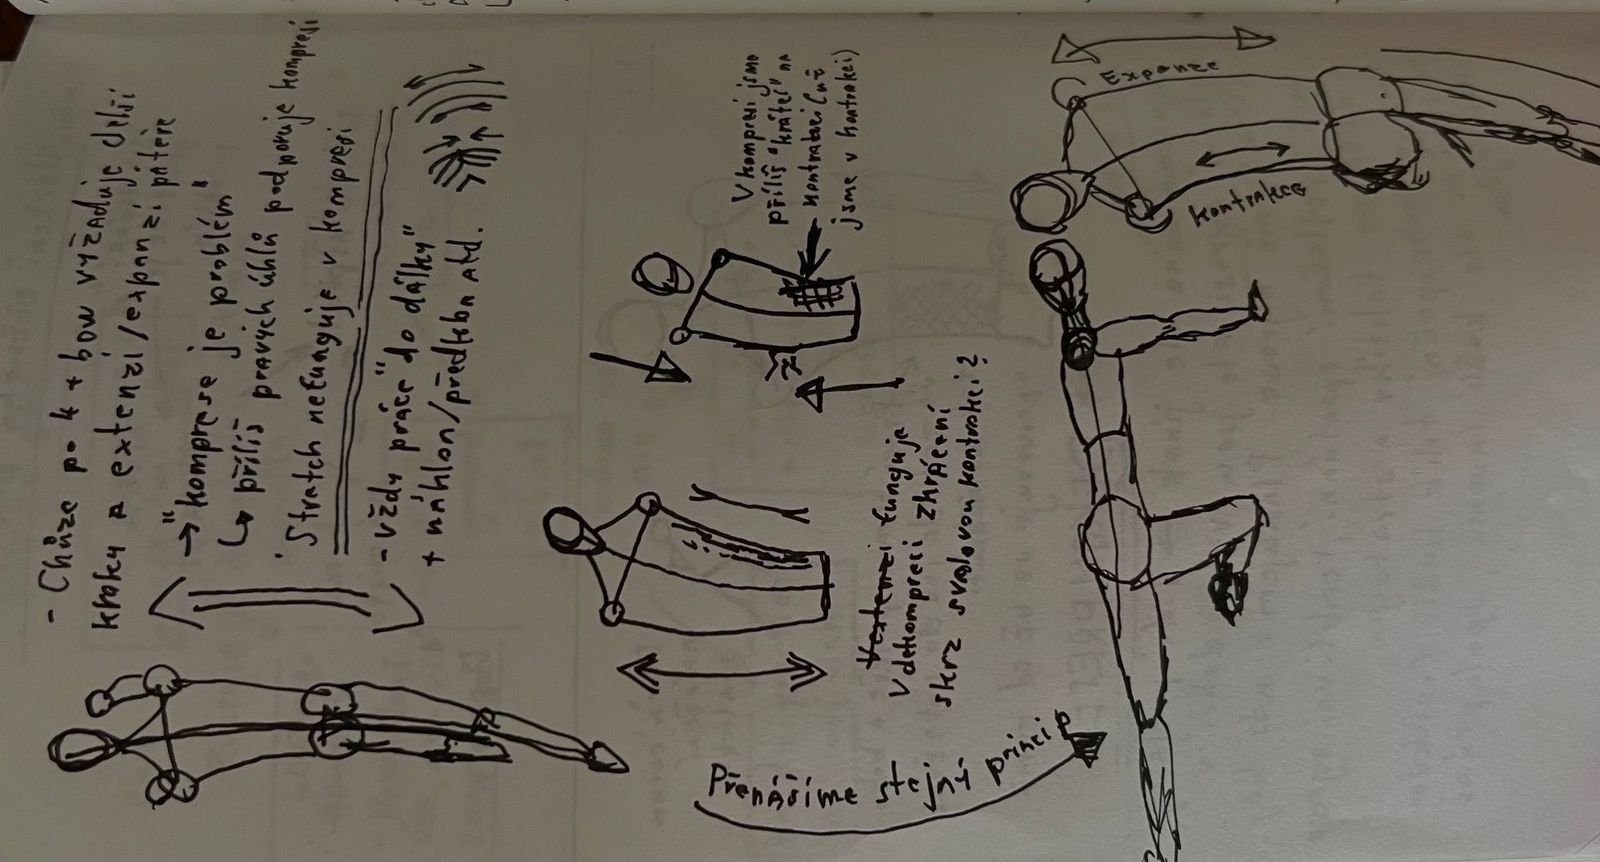 - Chůze po 4 + bow vyžaduje delší
kroky a extenzi/expanzi páteře
→ "komprese je problém"
↳ příliš pravých úhlů podporuje kompresi
Stratch nefunguje v kompresi
- vždy práce "do dálky"
+ náhlon/předklon atd.
V kompresi jsme
příliš "krátcí" na
kontrakci (už
jsme v kontrakci)
V extenzi funguje
V dekompresi zkrácení
skrz svalovou kontrakci?
Přenášíme stejný princip
Expanze
kontrakce